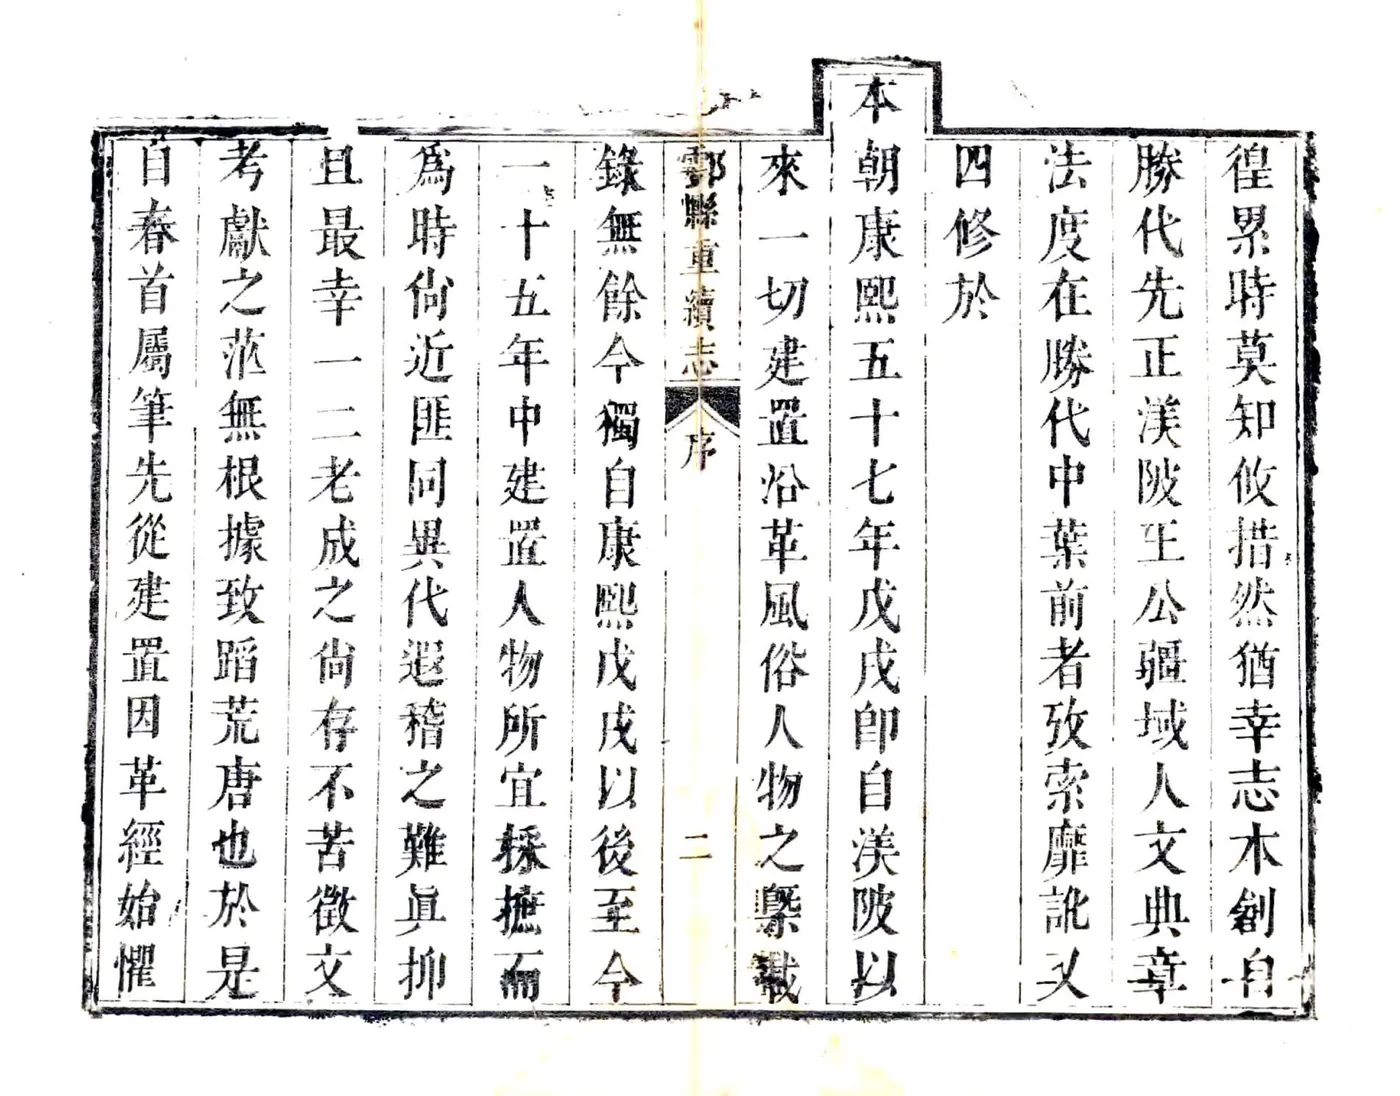 徨累時莫知攸措然猶幸志木創自
勝代先正渼陂王公疆域人文典章
法度在勝代中葉前者攷索靡訛又
四修於
本朝康熙五十七年戊戌卽自渼陂以
來一切建置沿革風俗人物之槩載
鄠縣重續志 序 二
錄無餘今獨自康熙戊戌以後至今
一十五年中建置人物所宜採摭而
爲時尙近匪同異代遐稽之難眞抑
且最幸一二老成之尙存不苦徵文
考獻之茫無根據致蹈荒唐也於是
自春首屬筆先從建置因革經始懼